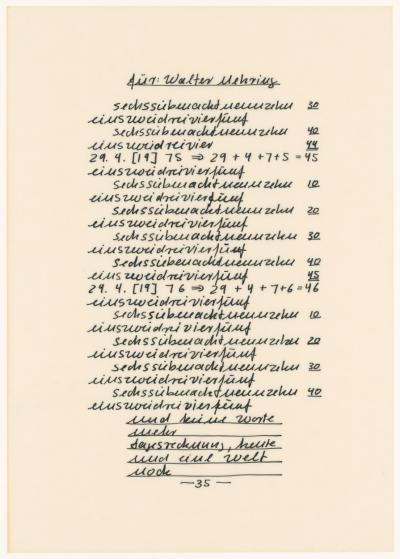 für: Walter Mehring
sechssiebenachtneunzehn 30
einszweidreivierfünf
sechssiebenachtneunzehn 40
einszweidreivier 44
29. 4. [19] 75 ⇒ 29 + 4 + 7 + 5 = 45
einszweidreivierfünf
sechssiebenachtneunzehn 10
einszweidreivierfünf
sechssiebenachtneunzehn 20
einszweidreivierfünf
sechssiebenachtneunzehn 30
einszweidreivierfünf
sechssiebenachtneunzehn 40
einszweidreivierfünf 45
29. 4. [19] 76 ⇒ 29 + 4 + 7 + 6 = 46
einszweidreivierfünf
sechssiebenachtneunzehn 10
einszweidreivierfünf
sechssiebenachtneunzehn 20
einszweidreivierfünf
sechssiebenachtneunzehn 30
einszweidreivierfünf
sechssiebenachtneunzehn 40
einszweidreivierfünf
und keine worte
mehr
tagsrechnung, heute
und eine welt
noch
—35—